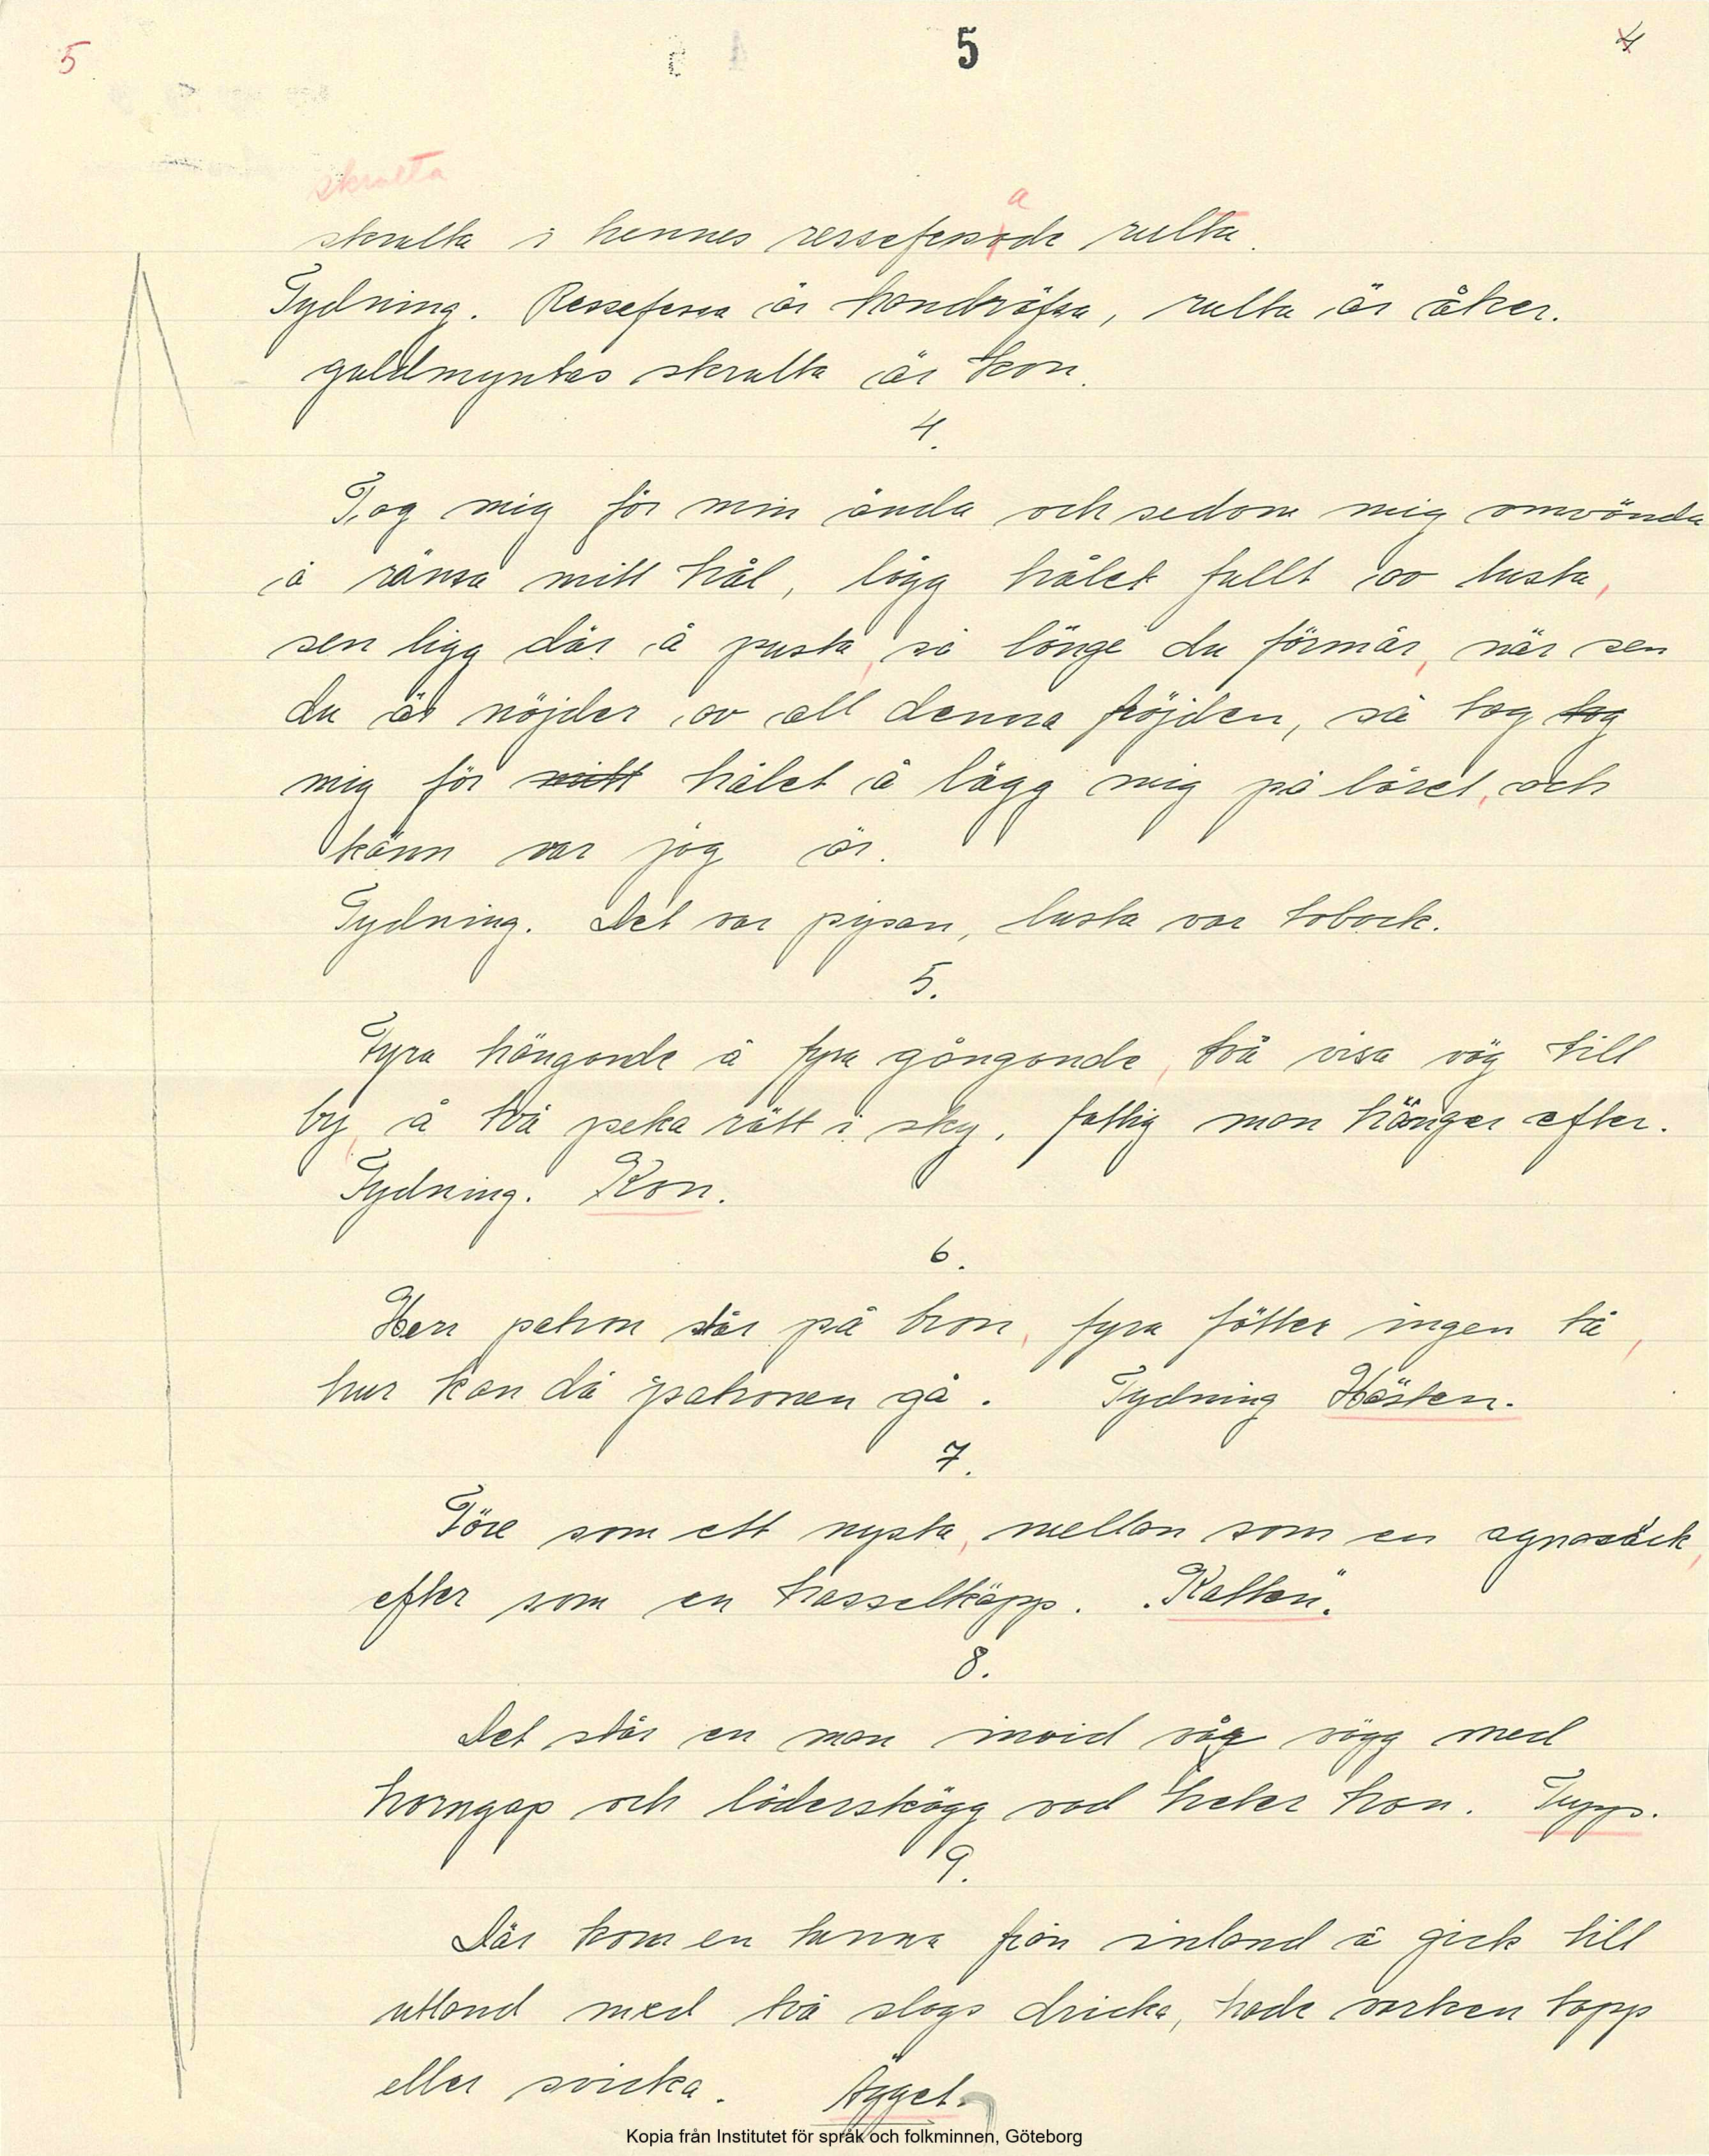 5 5 4
skralta
a
skralta i hennes ressefessade rulta.
Tydning. Ressefessa är handräfsa, rulta är åker.
guldmyntas skralta är kon.
4.
Tag mig för min ända och sedan mig omvända
å ränsa mitt hål, lägg hålet fullt av lusta,
sen ligg där å pusta, så länge du förmår, när sen
du är nöjder av all denna fröjden, så tag tag
mig för mitt hålet å lägg mig på låret, och
känn var jag är.
Tydning. Det var pipan, lusta var toback.
5.
Fyra hängande å fyra gångande, två visa väg till
by, å två peka rätt i sky, fattig man hänger efter.
Tydning. Kon.
6.
Herr patron står på bron, fyra fötter ingen tå,
hur kan då patronen gå. Tydning Hästen.
7.
Före som ett nysta, mellan som en agnasäck,
efter som en hasselkäpp. "Katten".
8.
Det står en man invid vår vägg med
horngap och läderskägg vad heter han. Tupp.
9.
Där kom en tunna från inland å gick till
utland med två slags dricka, hade varken tapp
eller svicka. Ägget.
Kopia från Institutet för språk och folkminnen, Göteborg